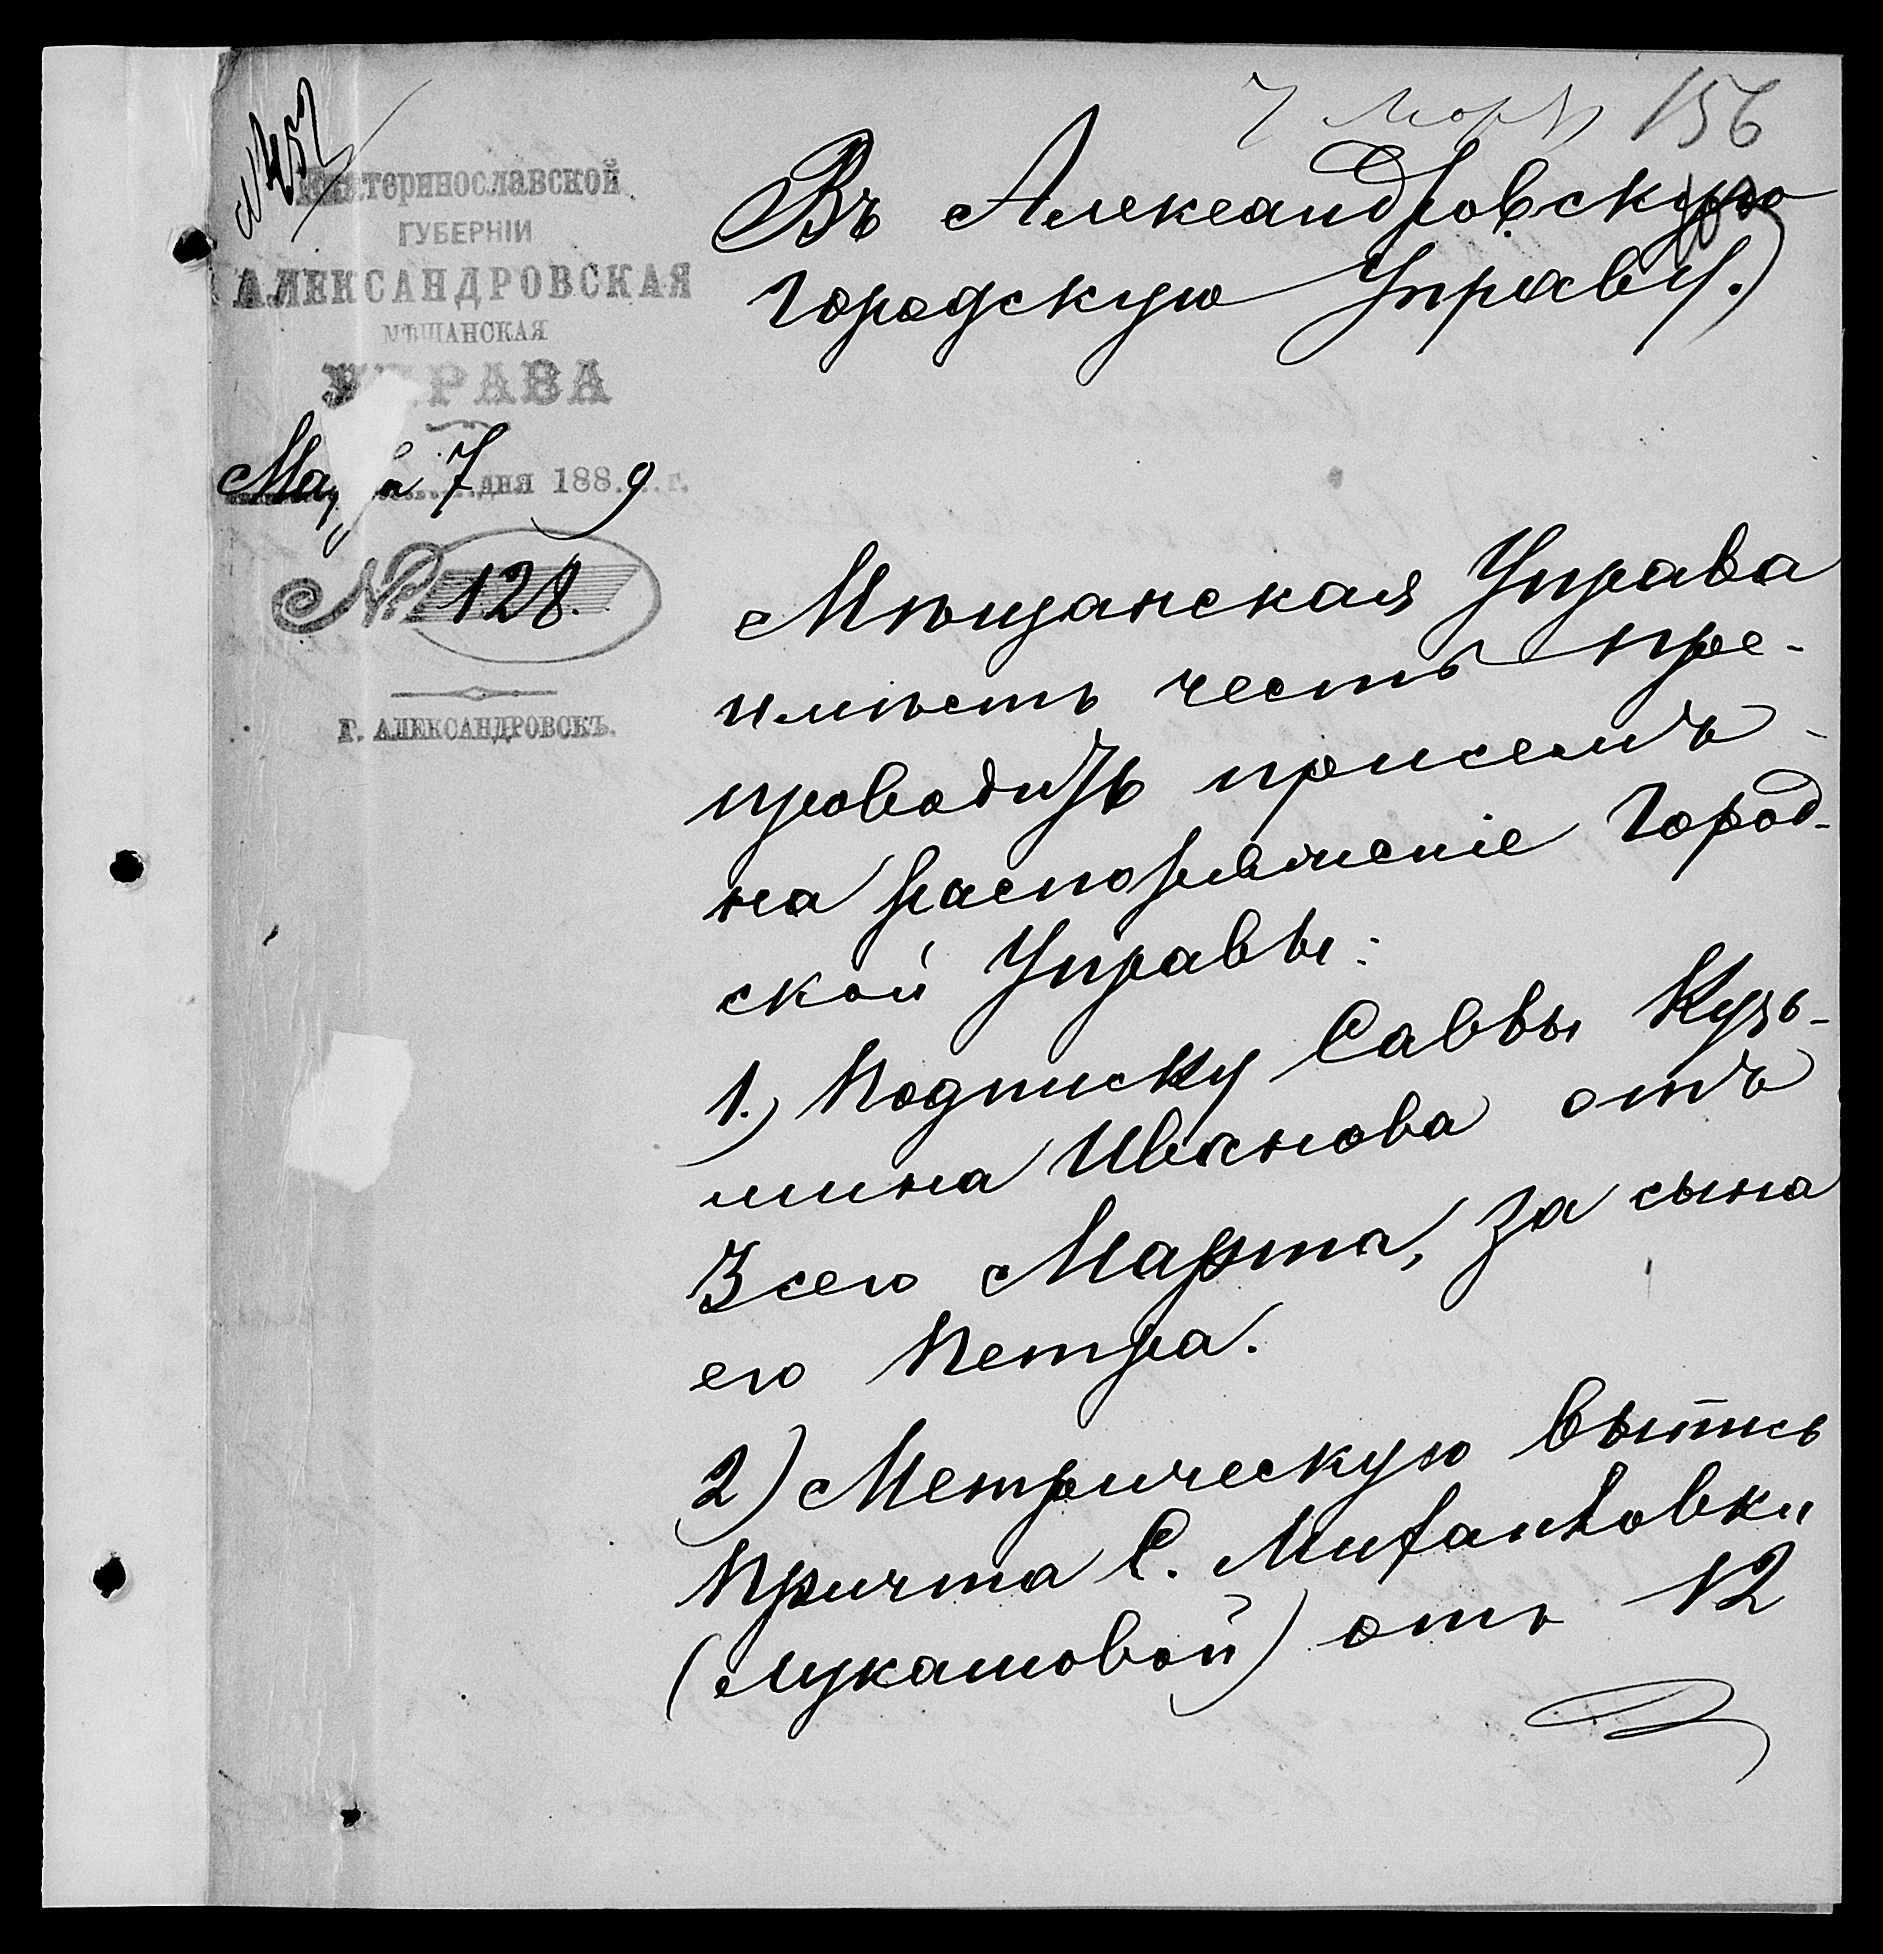 7 Марта 156
№ 457
Екатеринославской
ГУБЕРНІИ
АЛЕКСАНДРОВСКАЯ
МѢЩАНСКАЯ
УПРАВА
Марта 7 дня 1889 г.
№ 128.
Г. АЛЕКСАНДРОВСКЪ.
Въ Александровскую
Городскую Управу.
Мѣщанская Управа
имѣетъ честь пре-
проводить присемъ
на распоряженіе Город-
ской Управы:
1.) Подписку Саввы Кузь-
мина Иванова отъ
3 сего Марта, за сына
его Петра.
2) Метрическую выпись
Причта С. Михайловки
(Лукашовой) отъ 12